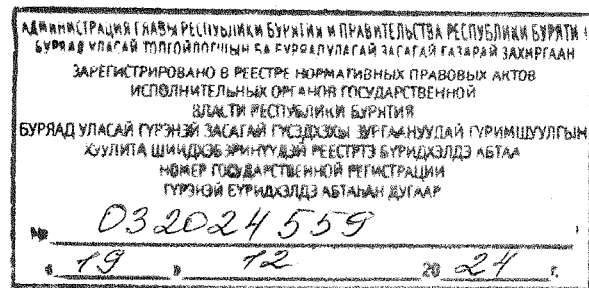 АДМИНИСТРАЦИЯ ГЛАВЫ РЕСПУБЛИКИ БУРЯТИЯ И ПРАВИТЕЛЬСТВА РЕСПУБЛИКИ БУРЯТИ
БУРЯАД УЛАСАЙ ТОЛГОЙЛОГШЫН БА БУРЯАД УЛАСАЙ ЗАСАГАЙ ГАЗАРАЙ ЗАХИРГААН
ЗАРЕГИСТРИРОВАНО В РЕЕСТРЕ НОРМАТИВНЫХ ПРАВОВЫХ АКТОВ
ИСПОЛНИТЕЛЬНЫХ ОРГАНОВ ГОСУДАРСТВЕННОЙ
ВЛАСТИ РЕСПУБЛИКИ БУРЯТИЯ
БУРЯАД УЛАСАЙ ГҮРЭНЭЙ ЗАСАГАЙ ГҮЙСЭДХЭХЫ ЗУРГААНУУДАЙ ГУРИМШУУЛГЫН
ХУУЛИТА РЕЕСТРТЭ БҮРИДХЭЛДЭ АБТАА
НОМЕР ГОСУДАРСТВЕННОЙ РЕГИСТРАЦИИ
ГҮРЭНЭЙ БҮРИДХЭЛДЭ АБТАҺАН ДУГААР
№ 032024559
« 19 » 12 20 24 г.